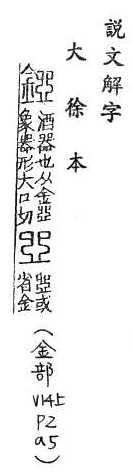 説文解字
大徐本
酒器也从金𠁁
象器形大口切
𠁁或
省金
(金部
V14上
P2
a5)